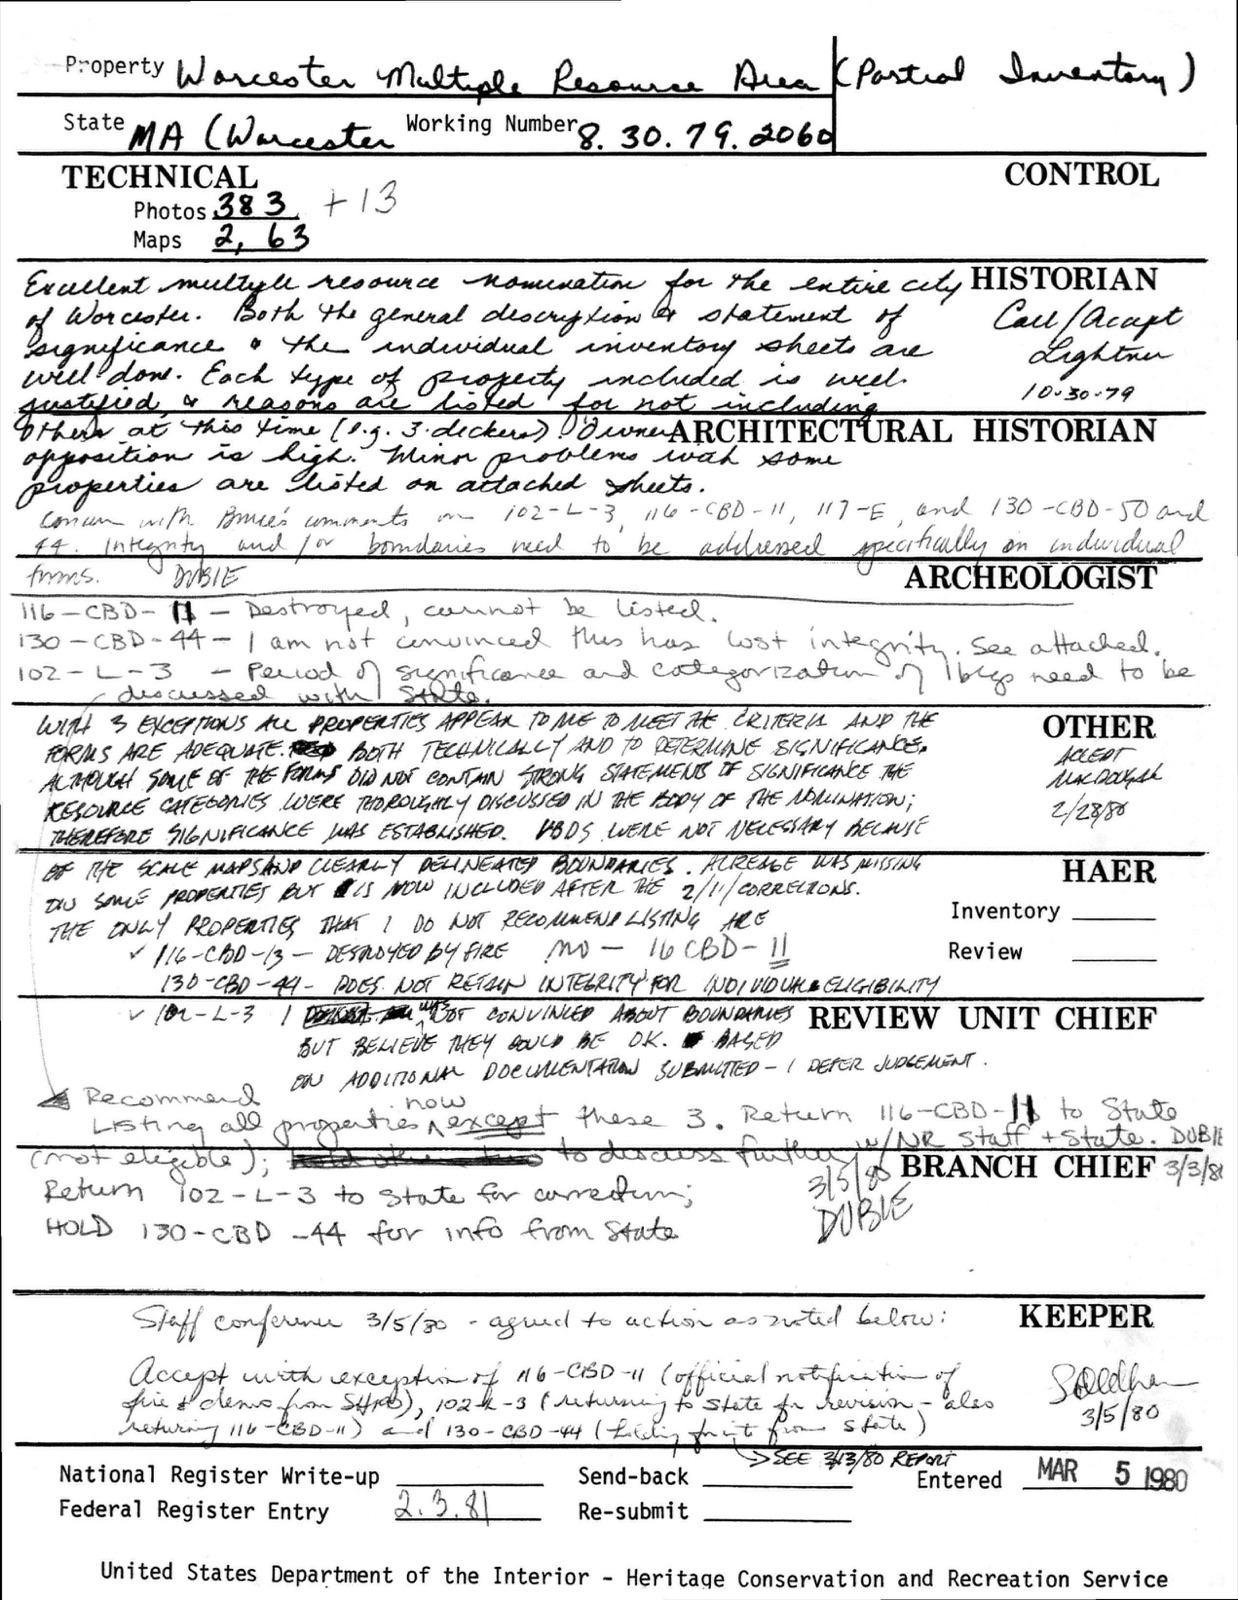 Property Worcester Multiple Resource Area (Partial Inventory)
State MA (Worcester Working Number 8.30.79.2060
TECHNICAL CONTROL
Photos 383 + 13
Maps 2, 63
HISTORIAN
Excellent multiple resource nomination for the entire city
of Worcester. Both the general description & statement of
significance & the individual inventory sheets are
well done. Each type of property included is well
justified, & reasons are listed for not including
others at this time (e.g. 3-deckers). Owner
opposition is high. Minor problems with some
properties are listed on attached sheets.
Call/Accept
Lightner
10-30-79
ARCHITECTURAL HISTORIAN
Concur with Bruce's comments on 102-L-3, 116-CBD-11, 117-E, and 130-CBD-50 and
44. Integrity and/or boundaries need to be addressed specifically on individual
forms. DUBIE
ARCHEOLOGIST
116-CBD-11 - Destroyed, cannot be listed.
130-CBD-44 - I am not convinced this has lost integrity. See attached.
102-L-3 - Period of significance and categorization of bldgs need to be
discussed with State.
OTHER
WITH 3 EXCEPTIONS ALL PROPERTIES APPEAR TO ME TO MEET THE CRITERIA AND THE
FORMS ARE ADEQUATE BOTH TECHNICALLY AND TO DETERMINE SIGNIFICANCE.
ALTHOUGH SOME OF THE FORMS DID NOT CONTAIN STRONG STATEMENTS OF SIGNIFICANCE THE
RESOURCE CATEGORIES WERE THOROUGHLY DISCUSSED IN THE BODY OF THE NOMINATION;
THEREFORE SIGNIFICANCE WAS ESTABLISHED. VBDS WERE NOT NECESSARY BECAUSE
OF THE SCALE MAPS AND CLEARLY DELINEATED BOUNDARIES. ACREAGE WAS MISSING
ON SOME PROPERTIES BUT IS NOW INCLUDED AFTER THE 2/11/ CORRECTIONS.
THE ONLY PROPERTIES THAT I DO NOT RECOMMEND LISTING ARE
✓ 116-CBD-13 - DESTROYED BY FIRE NO - 116 CBD-11
130-CBD-44 - DOES NOT RETAIN INTEGRITY FOR INDIVIDUAL ELIGIBILITY
✓ 102-L-3 I WAS NOT CONVINCED ABOUT BOUNDARIES
BUT BELIEVE THEY COULD BE OK. BASED
ON ADDITIONAL DOCUMENTATION SUBMITTED - I DEFER JUDGEMENT.
ACCEPT
MACDOUGAL
2/28/80
HAER
Inventory
Review
REVIEW UNIT CHIEF
Recommend
Listing all properties now except these 3. Return 116-CBD-11 to State
(not eligible); to discuss further w/NR Staff + State. DUBIE
3/3/80
Return 102-L-3 to State for correction;
HOLD 130-CBD-44 for info from State
3/5/80
DUBIE
BRANCH CHIEF
KEEPER
Staff conference 3/5/80 - agreed to action as noted below:
Accept with exception of 116-CBD-11 (official notification of
fire & demo from SHPO), 102-L-3 (returning to State for revision - also
returning 116-CBD-11) and 130-CBD-44 (holding for info from State)
→ SEE 3/13/80 REPORT
3/5/80
National Register Write-up Send-back Entered MAR 5 1980
Federal Register Entry 2.3.81 Re-submit
United States Department of the Interior - Heritage Conservation and Recreation Service